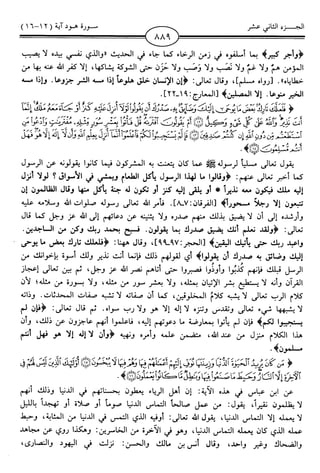 الجـزء الثاني عشر
٨٨٩
سـورة هـود آية (١٢-١٦)
﴿وأجر كبير﴾ بما أسلفوه في زمن الرخاء كما جاء في الحديث «والذي نفسي بيده لا يصيب
المؤمن همٌّ ولا غمٌّ ولا نَصَب ولا وَصَب ولا حَزَن حتى الشوكة يشاكها، إلا كفر الله عنه بها من
خطاياه». [رواه مسلم]، وقال تعالى: ﴿إن الإنسان خلق هلوعاً إذا مسه الشر جزوعا. وإذا مسه
الخير منوعا. إلا المصلين﴾ [المعارج: ١٩-٢٢].
﴿فَلَعَلَّكَ تَارِكٌ بَعْضَ مَا يُوحَىٰ إِلَيْكَ وَضَائِقٌ بِهِ صَدْرُكَ أَن يَقُولُوا لَوْلَا أُنزِلَ عَلَيْهِ كَنزٌ أَوْ جَاءَ مَعَهُ مَلَكٌ إِنَّمَا
أَنتَ نَذِيرٌ وَاللَّهُ عَلَىٰ كُلِّ شَيْءٍ وَكِيلٌ أَمْ يَقُولُونَ افْتَرَاهُ قُلْ فَأْتُوا بِعَشْرِ سُوَرٍ مِّثْلِهِ مُفْتَرَيَاتٍ وَادْعُوا مَنِ
اسْتَطَعْتُم مِّن دُونِ اللَّهِ إِن كُنتُمْ صَادِقِينَ فَإِلَّمْ يَسْتَجِيبُوا لَكُمْ فَاعْلَمُوا أَنَّمَا أُنزِلَ بِعِلْمِ اللَّهِ وَأَن لَّا إِلَٰهَ إِلَّا هُوَ فَهَلْ
أَنتُم مُّسْلِمُونَ﴾.
يقول تعالى مسلياً لرسوله ﷺ عما كان يتعنت به المشركون فيما كانوا يقولونه عن الرسول
كما أخبر تعالى عنهم: ﴿وقالوا ما لهذا الرسول يأكل الطعام ويمشي في الأسواق ؟ لولا أنزل
إليه ملك فيكون معه نذيراً * أو يلقى إليه كنز أو تكون له جنة يأكل منها وقال الظالمون إن
تتبعون إلا رجلاً مسحوراً﴾ [الفرقان: ٧،٨]. فأمر الله تعالى رسوله صلوات الله وسلامه عليه
وأرشده إلى أن لا يضيق بذلك منهم صدره ولا يثنينه عن دعائهم إلى الله عز وجل كما قال
تعالى: ﴿ولقد نعلم أنك يضيق صدرك بما يقولون. فسبح بحمد ربك وكن من الساجدين.
واعبد ربك حتى يأتيك اليقين﴾ [الحجر: ٩٧-٩٩]، وقال ههنا: ﴿فلعلك تارك بعض ما يوحى
إليك وضائق به صدرك أن يقولوا﴾ أي لقولهم ذلك فإنما أنت نذير ولك أسوة بإخوانك من
الرسل قبلك فإنهم كُذِّبوا وأوذُوا فصبروا حتى أتاهم نصر الله عز وجل، ثم بين تعالى إعجاز
القرآن وأنه لا يستطيع بشر الإتيان بمثله، ولا بعشر سور من مثله، ولا بسورة من مثله؛ لأن
كلام الرب تعالى لا يشبه كلامَ المخلوقين، كما أن صفاته لا تشبه صفات المحدثات. وذاته
لا يشبهها شيء تعالى وتقدس وتنزه لا إله إلا هو ولا رب سواه. ثم قال تعالى: ﴿فإن لم
يستجيبوا لكم﴾ فإن لم يأتوا بمعارضة ما دعوتهم إليه، فاعلموا أنهم عاجزون عن ذلك، وأن
هذا الكلام منزل من عند الله، متضمن علمه وأمره ونهيه ﴿وأن لا إله إلا هو فهل أنتم
مسلمون﴾.
﴿مَن كَانَ يُرِيدُ الْحَيَاةَ الدُّنْيَا وَزِينَتَهَا نُوَفِّ إِلَيْهِمْ أَعْمَالَهُمْ فِيهَا وَهُمْ فِيهَا لَا يُبْخَسُونَ أُولَٰئِكَ الَّذِينَ لَيْسَ لَهُمْ فِي
الْآخِرَةِ إِلَّا النَّارُ وَحَبِطَ مَا صَنَعُوا فِيهَا وَبَاطِلٌ مَّا كَانُوا يَعْمَلُونَ﴾.
عن ابن عباس في هذه الآية: إن أهل الرياء يعطون بحسناتهم في الدنيا وذلك أنهم
لا يظلمون نقيراً، يقول: من عمل صالحاً التماس الدنيا صوماً أو صلاة أو تهجداً بالليل
لا يعمله إلا التماس الدنيا، يقول الله تعالى: أوفيه الذي التمس في الدنيا من المثابة، وحبط
عمله الذي كان يعمله التماس الدنيا، وهو في الآخرة من الخاسرين: وهكذا روي عن مجاهد
والضحاك وغير واحد، وقال أنس بن مالك والحسن: نزلت في اليهود والنصارى،